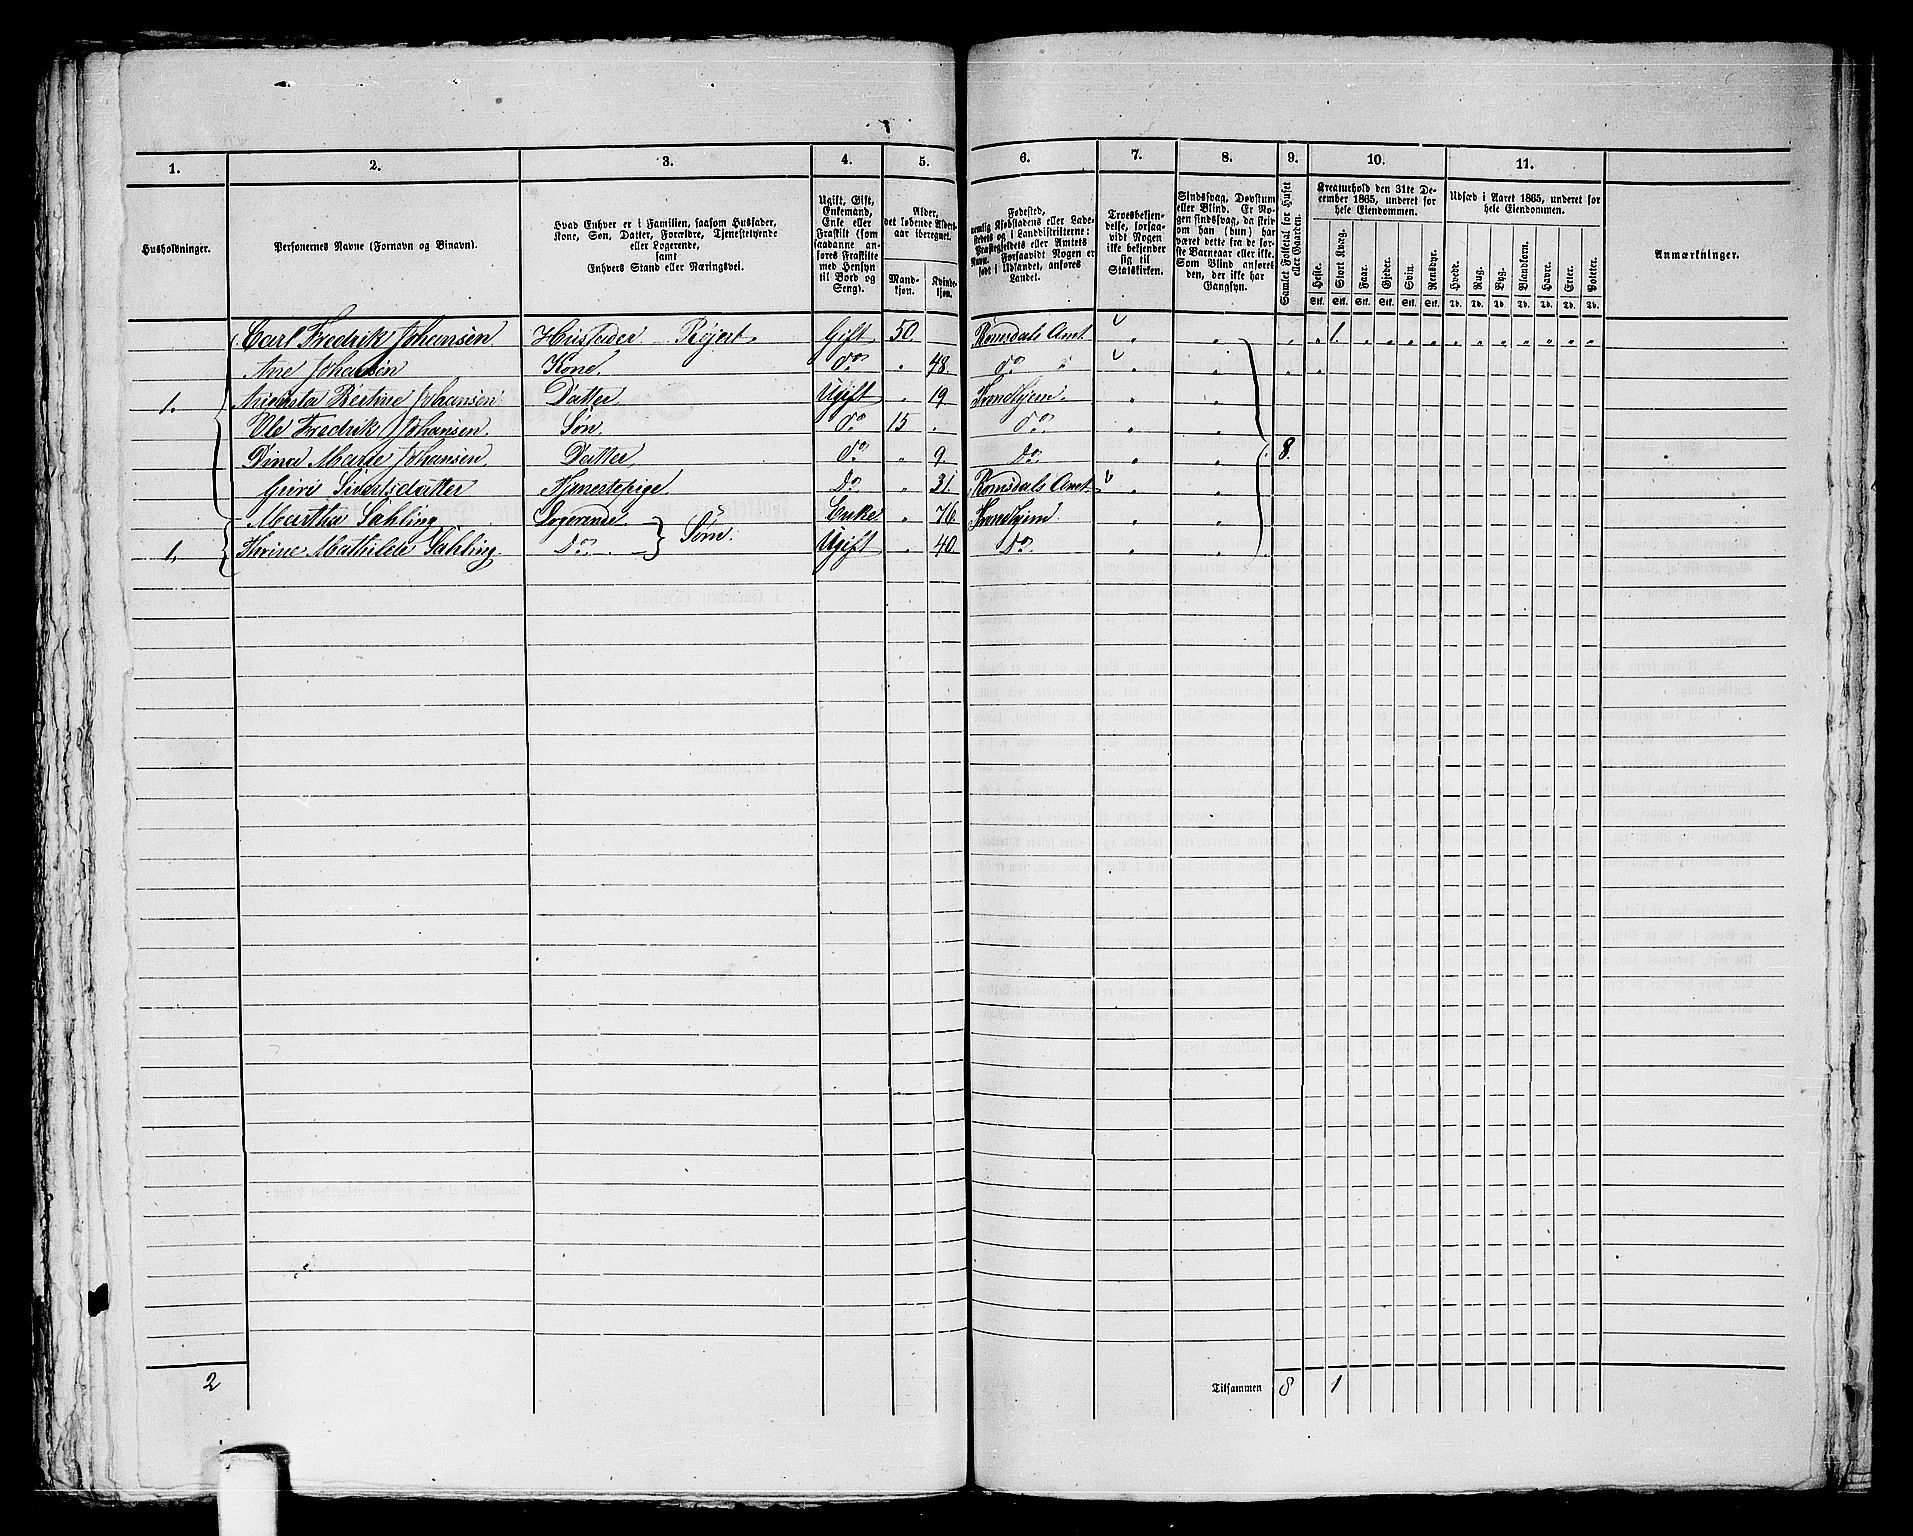 1. 2. 3. 4. 5. 6. 7. 8. 9. 10. 11.
Husholdninger.
Personernes Navne (Fornavn og Binavn).
Hvad Enhver er i Familien, saasom Husfader,
Kone, Søn, Datter, Forældre, Tjenestetyende
eller Logerende,
samt
Enhvers Stand eller Næringsvei.
Ugift, Gift,
Enkemand,
Enke eller
Fraskilt (som
saadanne an-
føres Fraskilte
med Hensyn
til Bord og
Seng).
Alder,
det løbende Alders-
aar iberegnet.
Mand-
kjøn.
Kvinde-
kjøn.
Fødested,
nemlig Kjøbstadens eller Lade-
stedets og i Landdistrikterne:
Præstegjeldets eller Amtets
Navn. Forsaavidt Nogen er
født i Udlandet, anføres
Landet.
Troesbekjen-
delse, forsaa-
vidt Nogen
ikke bekjender
sig til
Statskirken.
Sindssvag, Døvstum
eller Blind. Er No-
gen sindssvag, da skrives
om han (hun) har
været dette fra de før-
ste Barneaar eller ikke.
Som Blind anføres
den, der ikke har
Gangsyn.
Samlet Folketal for Huset
eller Gaarden.
Kreaturhold den 31te De-
cember 1865, underet for
hele Eiendommen.
Heste. Stort Kvæg. Faar. Gjeder. Sviin. Rensdyr.
Stk. Stk. Stk. Stk. Stk. Stk.
Udsæd i Aaret 1865, underet for
hele Eiendommen.
Hvede. Rug. Byg. Blandkorn. Havre. Erter. Poteter.
Td. Td. Td. Td. Td. Td. Td.
Anmærkninger.
Carl Fredrik Johansen Husfader Gift 50 Romsdals Amt 1
Ane Johansen Kone do 48 do
1. Bertine Johansen Datter Ugift 19 Trondhjem
Ole Fredrik Johansen Søn do 15 do
Dina Marie Johansen Datter do 9 Do 8
Guri Sivertsdatter Tjenestepige Do 31 Romsdals Amt
Martha Sahling Logerende Enke 76 Trondhjem
1. Mathilde Sahling Do Ugift 40 Do
2 Tilsammen 8 1